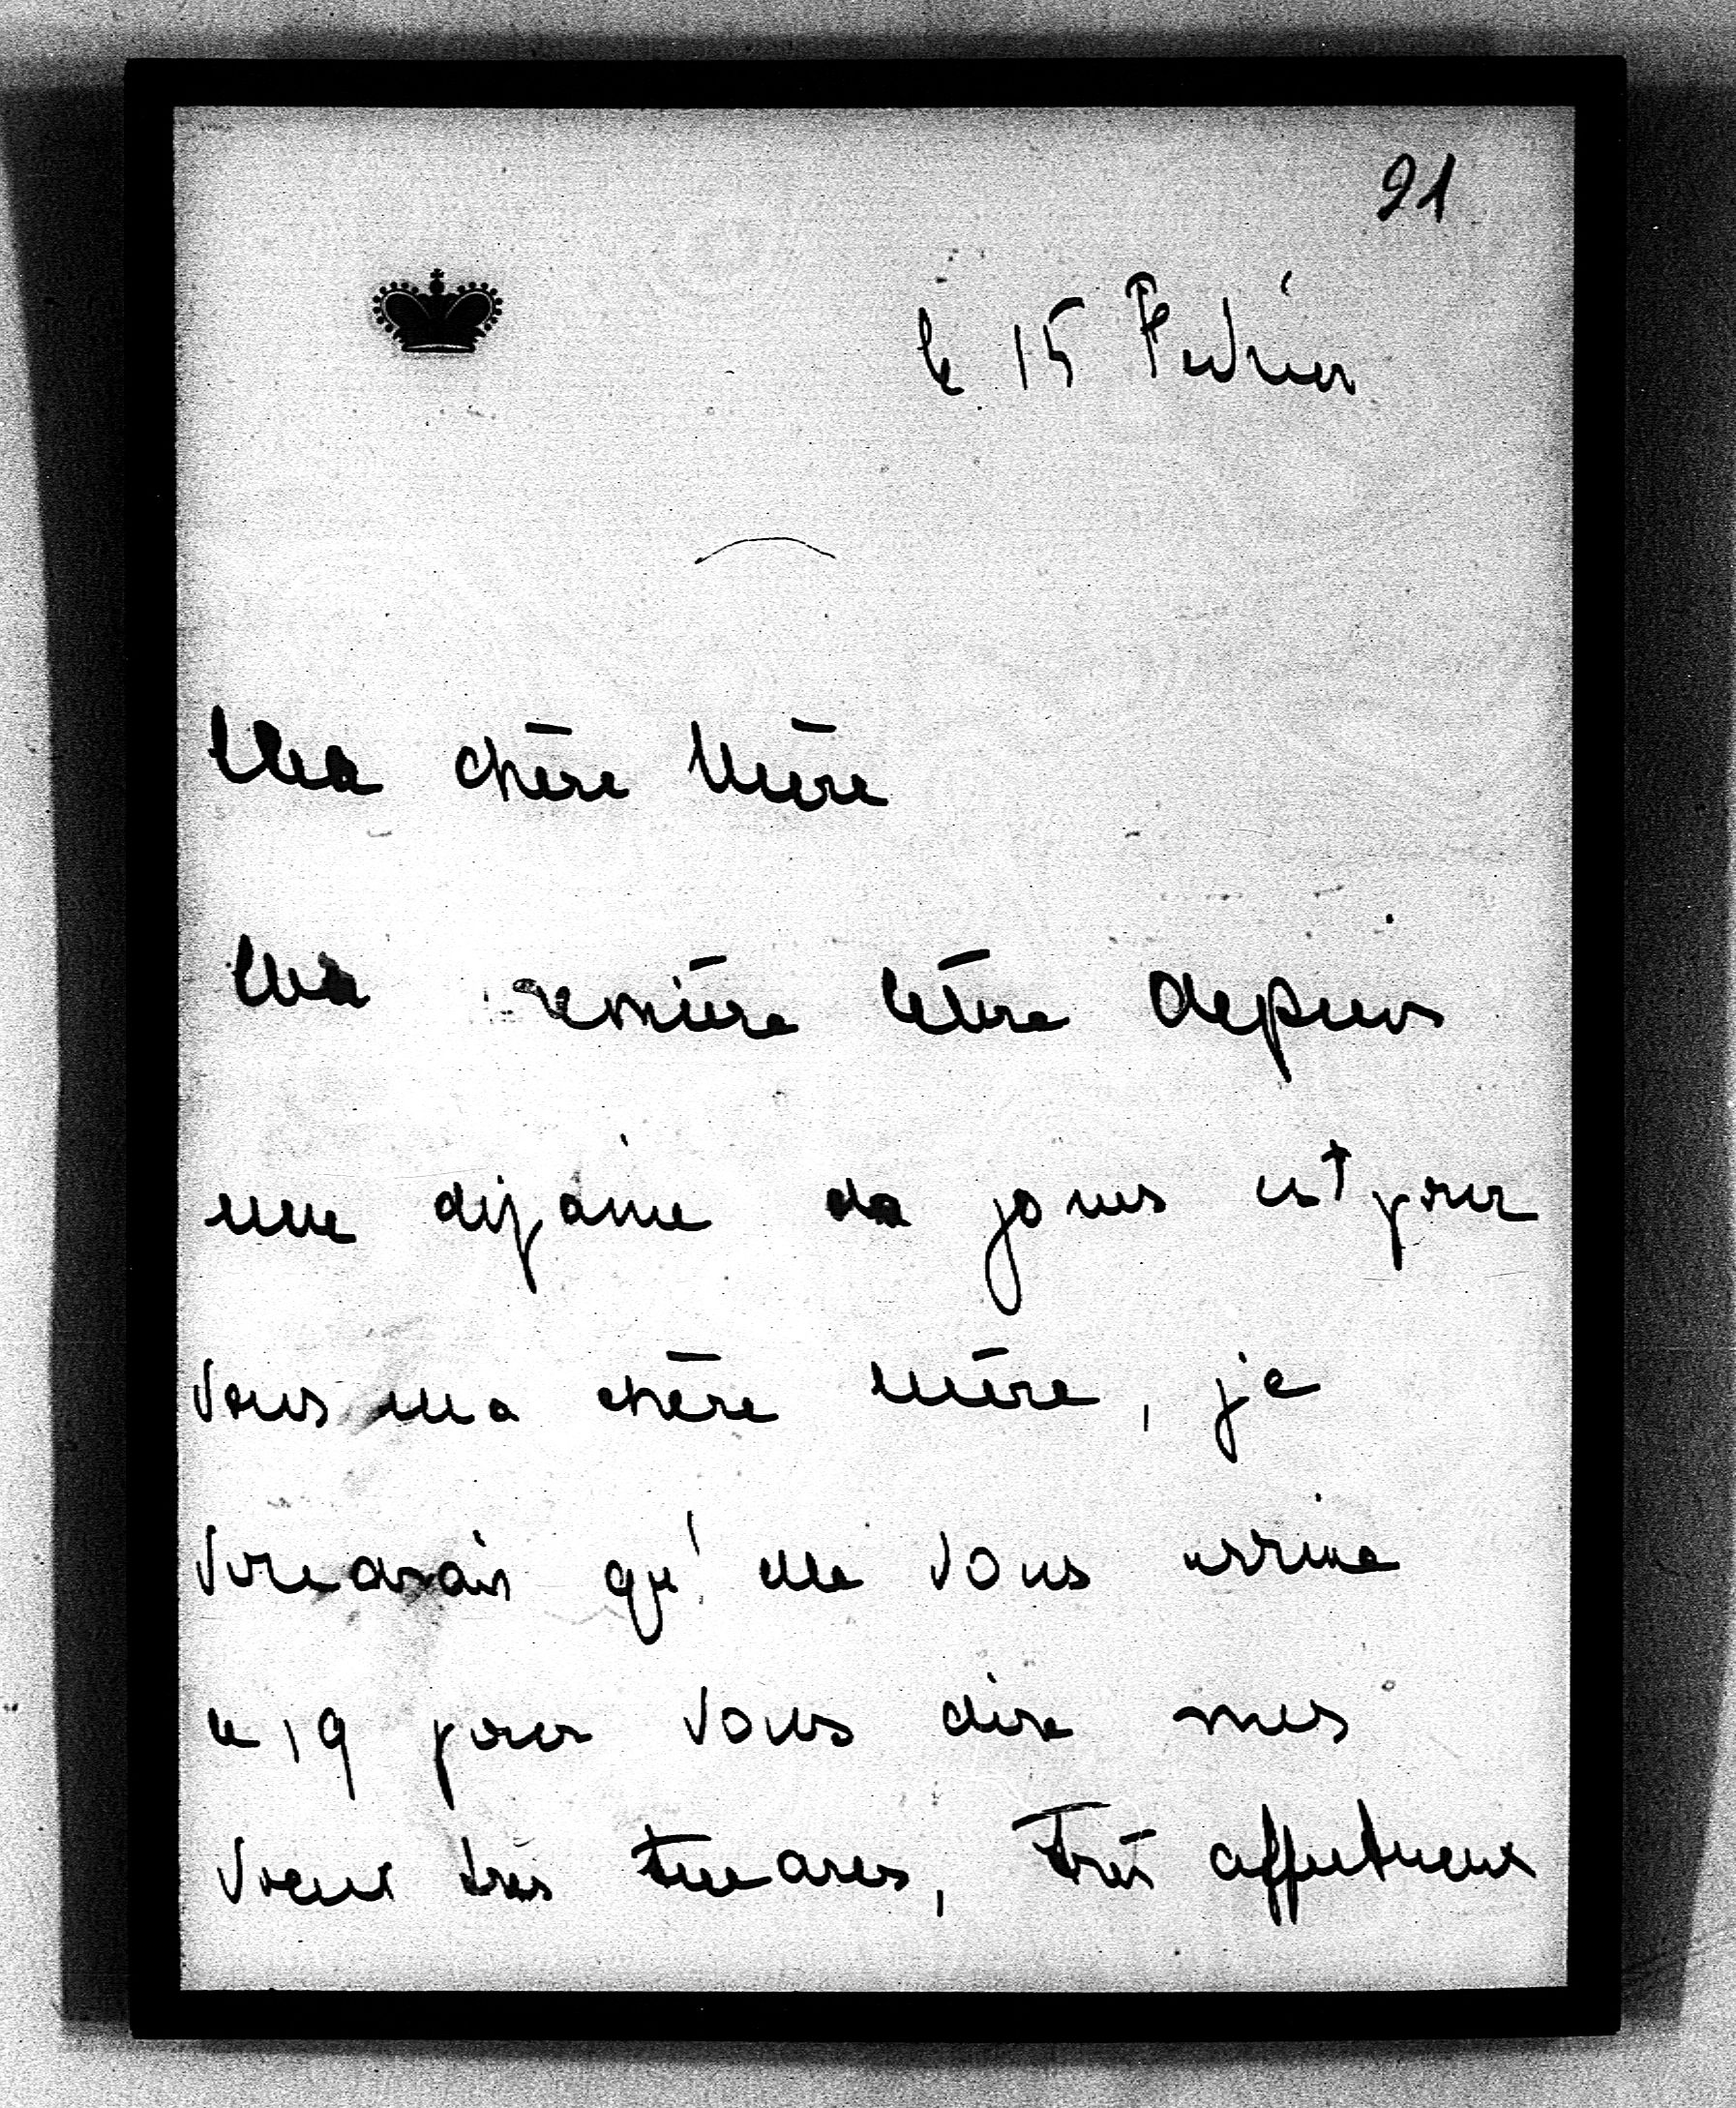 91
le 15 Février
Ma chère Mère
Ma première lettre depuis
une dizaine de jours est pour
vous ma chère mère, je
voudrais qu'elle vous arrive
le 19 pour vous dire mes
voeux très tendres, très affectueux